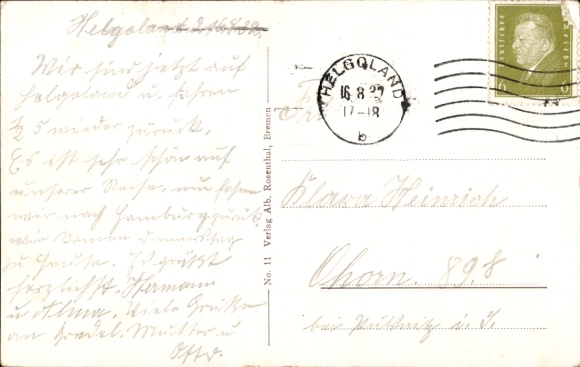 Helgoland d. 16.8.32,
Wir sind jetzt auf
Helgoland u. fahren
1/2 5 wieder zurück.
Es ist sehr schön auf
unserer Reise, nun fahren
wir nach Hamburg zurück
wir komen Donnerstag
zu Hause. Es grüßt
herzlichst. Hermann
u Alma. Viele Grüße
an Mutter u
Otto.
No. 11 Verlag Alb. Rosenthal, Bremen
HELGOLAND
16.8.32
17-18
b
6 6
Klara Heinrich
Ohorn. 898
bei Pulsnitz i. S.